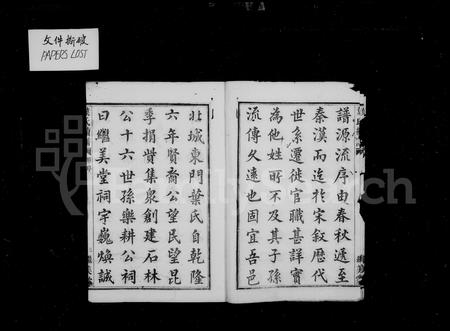 文件撕破
PAPERS LOST
譜源流序由春秋遞至
秦漢而迄於宋叙歴代
世系遷徙官職甚詳實
為他姓所不及其子孫
流傳久遠也固宜吾邑
北城東門葉氏自乾隆
六年賢裔公望民望昆
季捐貲集衆創建石林
公十六世孫樂耕公祠
曰繼美堂祠宇巍煥誠